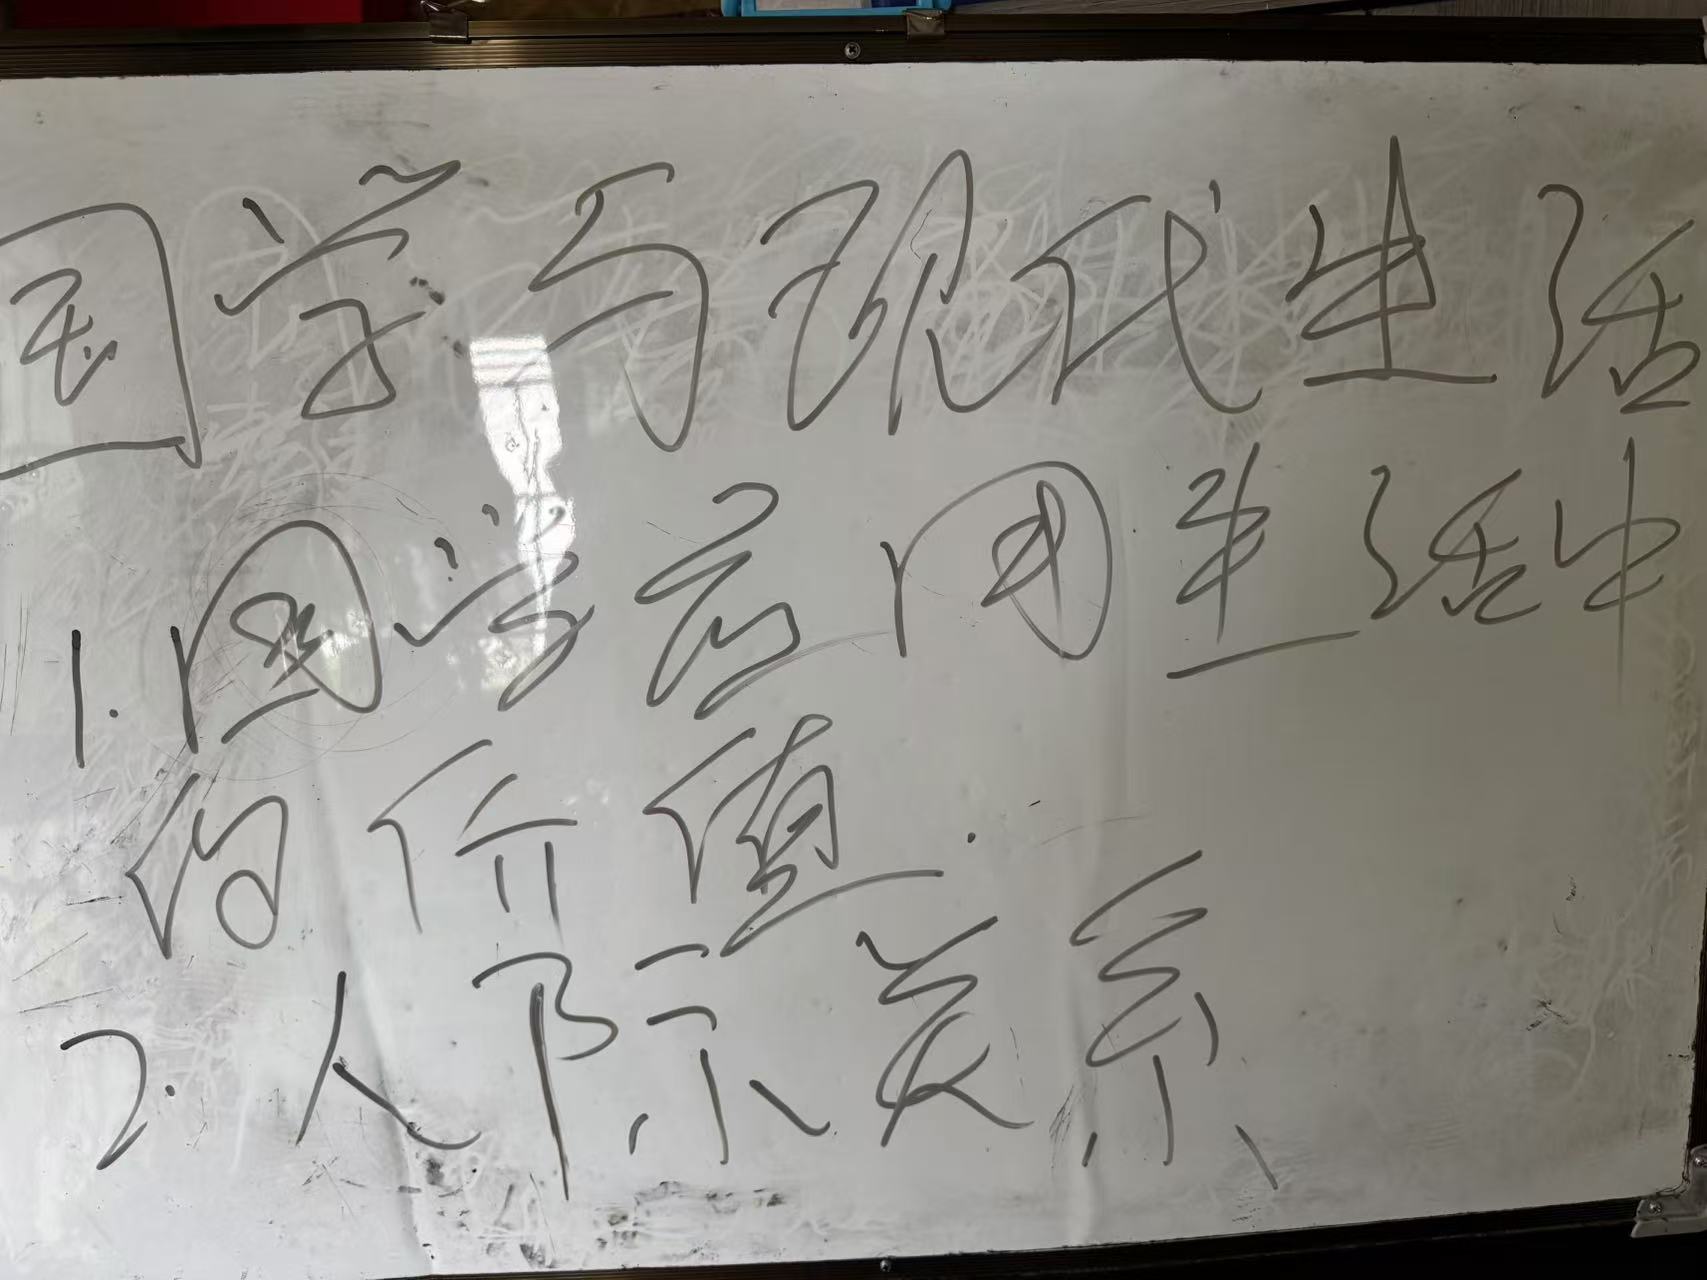 国学与现代生活
1.国学应用生活中
的价值.
2.人际关系